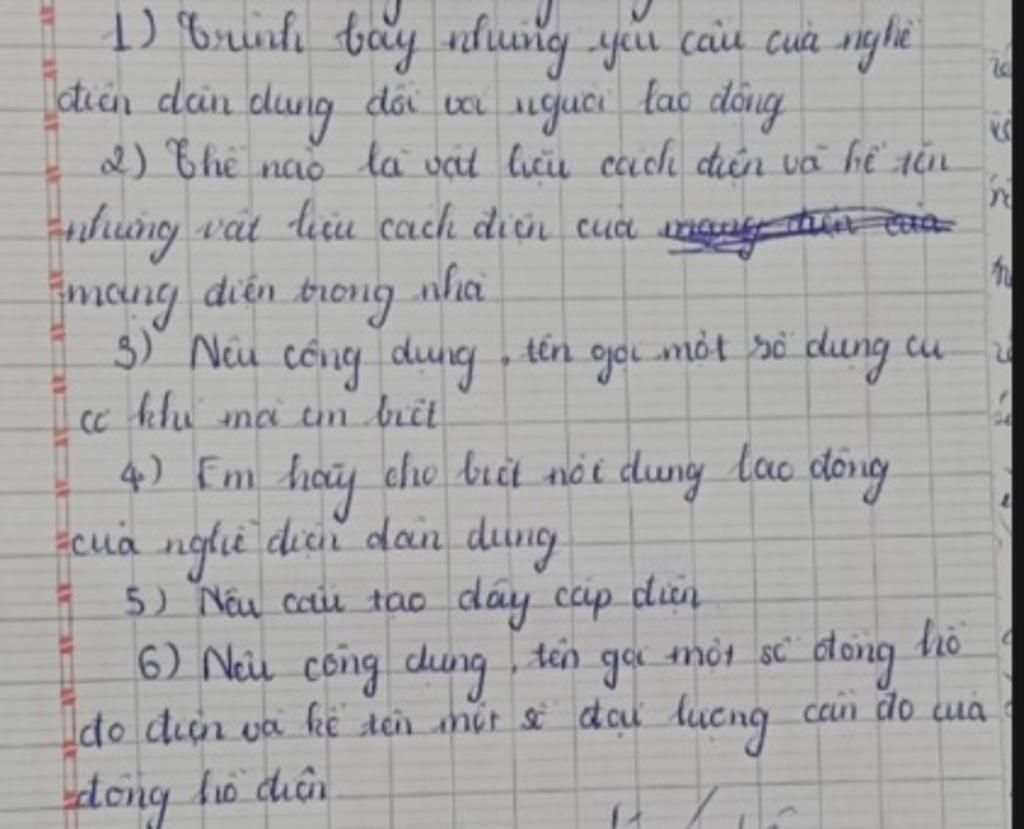 1) Trình bày những yêu cầu của nghề
điện dân dụng đối với người lao động
2) Thế nào là vật liệu cách điện và kể tên
những vật liệu cách điện của mạng điện của
mạng điện trong nhà
3) Nêu công dụng, tên gọi một số dụng cụ
cơ khí mà em biết
4) Em hãy cho biết nội dung lao động
của nghề điện dân dụng
5) Nêu cấu tạo dây cáp điện
6) Nêu công dụng, tên gọi một số đồng hồ
đo điện và kể tên một số đại lượng cần đo của
đồng hồ điện